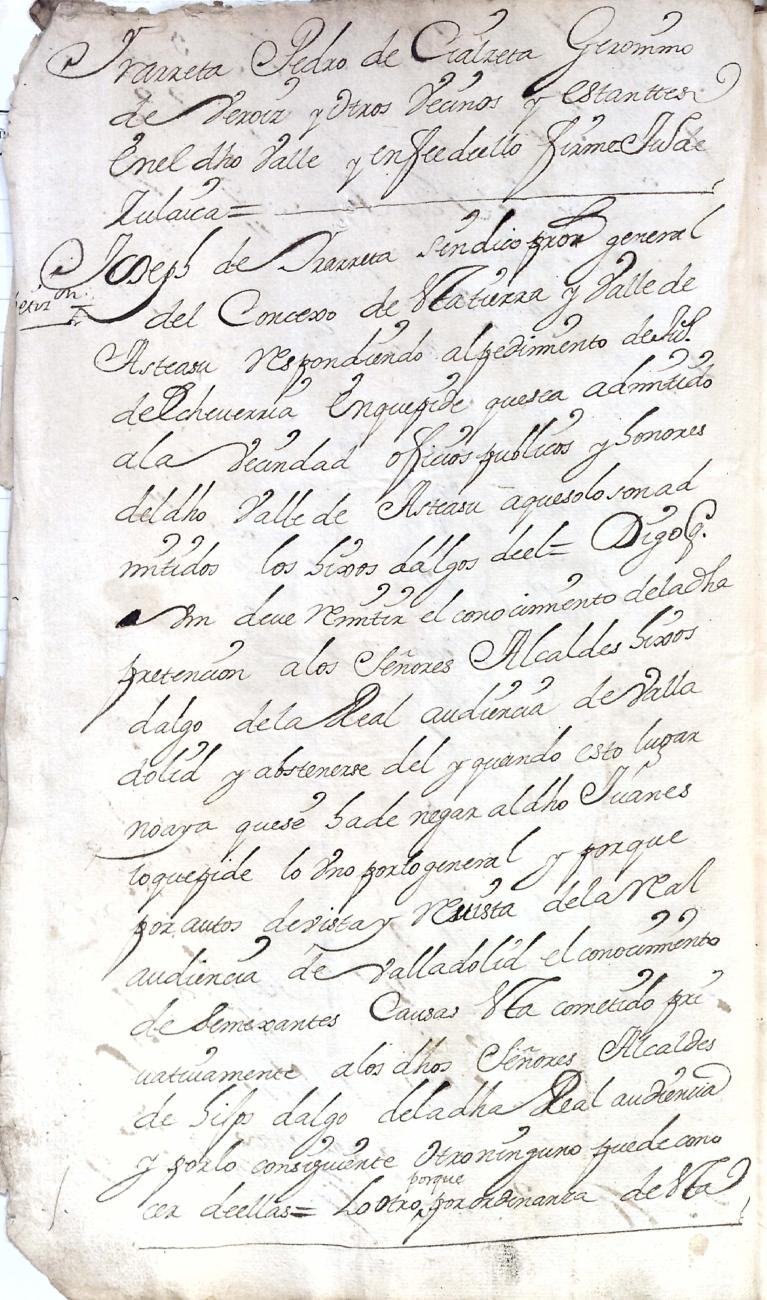 Yrarreta Pedro de Cialzeta Geronimo
de Veroiz y otros Vecinos y estanttes
en el dho Valle y en fee de ello firme Ju de
Zulaica=
Joseph de Yrarreta sindico pror general
petizon
del Concexo de esta tierra y Valle de
Asteasu respondiendo al pedimento de Ju.
de Echeverria en que pide que sea admitido
a la Vecindad oficios publicos y honores
del dho Valle de Asteasu a que solo son ad
mitidos los hixos dalgos de el= Digo q.
Vm deve remitir el conocimiento de la dha
pretencion a los Señores Alcaldes hixos
dalgo de la Real audiencia de Valla
dolid y abstenerse del y quando esto lugar
no aya que se ha de negar al dho Juanes
lo que pide lo Uno por lo general y porque
por autos de vista y revista de la real
audiencia de Valladolid el conocimiento
de Semexantes Causas esta cometido pri
uatiuamente a los dhos Señores Alcaldes
de hijos dalgo de la dha Real audiencia
y por lo consiguiente otro ninguno puede cono
cer de ellas= Lo otro porque por ordenanza de esta